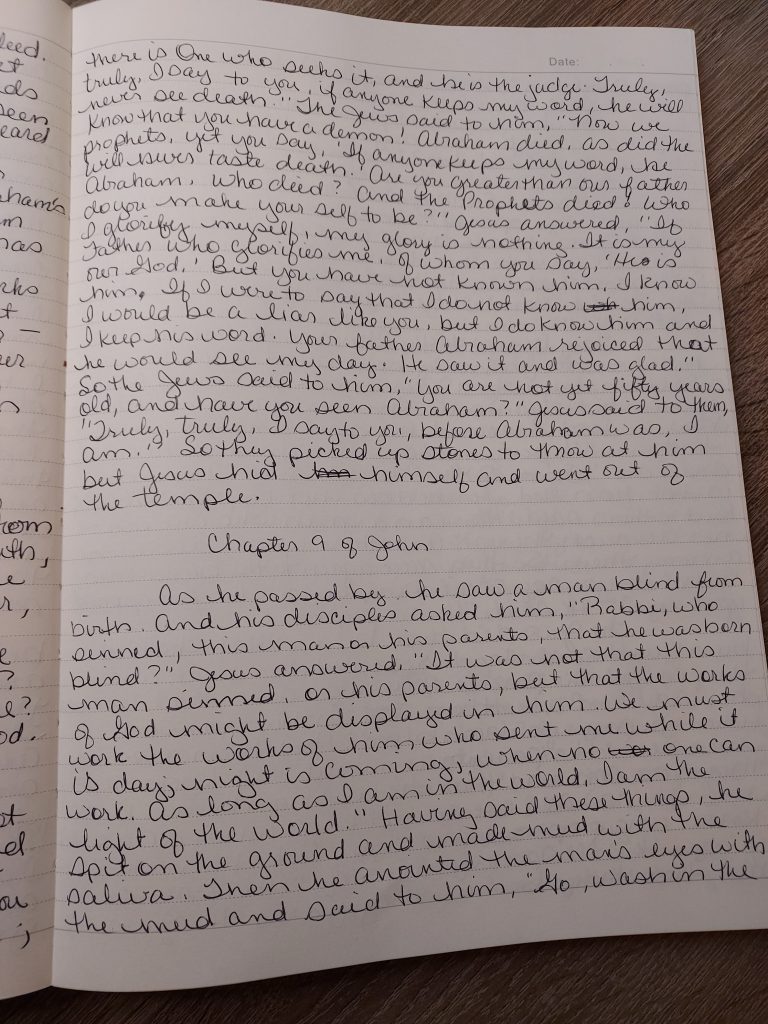 Date:
there is One who seeks it, and he is the judge. Truly,
truly, I say to you, if anyone keeps my word, he will
never see death." The Jews said to him, "Now we
know that you have a demon! Abraham died, as did the
prophets, yet you say, 'If anyone keeps my word, he
will never taste death.' Are you greater than our father
Abraham, who died? And the Prophets died! Who
do you make your self to be?" Jesus answered, "If
I glorify myself, my glory is nothing. It is my
Father who glorifies me, of whom you say, 'He is
our God.' But you have not known him. I know
him. If I were to say that I do not know him,
I would be a liar like you, but I do know him and
I keep his word. Your father Abraham rejoiced that
he would see my day. He saw it and was glad."
So the Jews said to him, "You are not yet fifty years
old, and have you seen Abraham?" Jesus said to them,
"Truly, truly, I say to you, before Abraham was, I
am." So they picked up stones to throw at him
but Jesus hid himself and went out of
the temple.
Chapter 9 of John
As he passed by he saw a man blind from
birth. And his disciples asked him, "Rabbi, who
sinned, this man or his parents, that he was born
blind?" Jesus answered, "It was not that this
man sinned, or his parents, but that the works
of God might be displayed in him. We must
work the works of him who sent me while it
is day; night is coming, when no one can
work. As long as I am in the world, I am the
light of the world." Having said these things, he
spit on the ground and made mud with the
saliva. Then he anointed the man's eyes with
the mud and said to him, "Go, wash in the